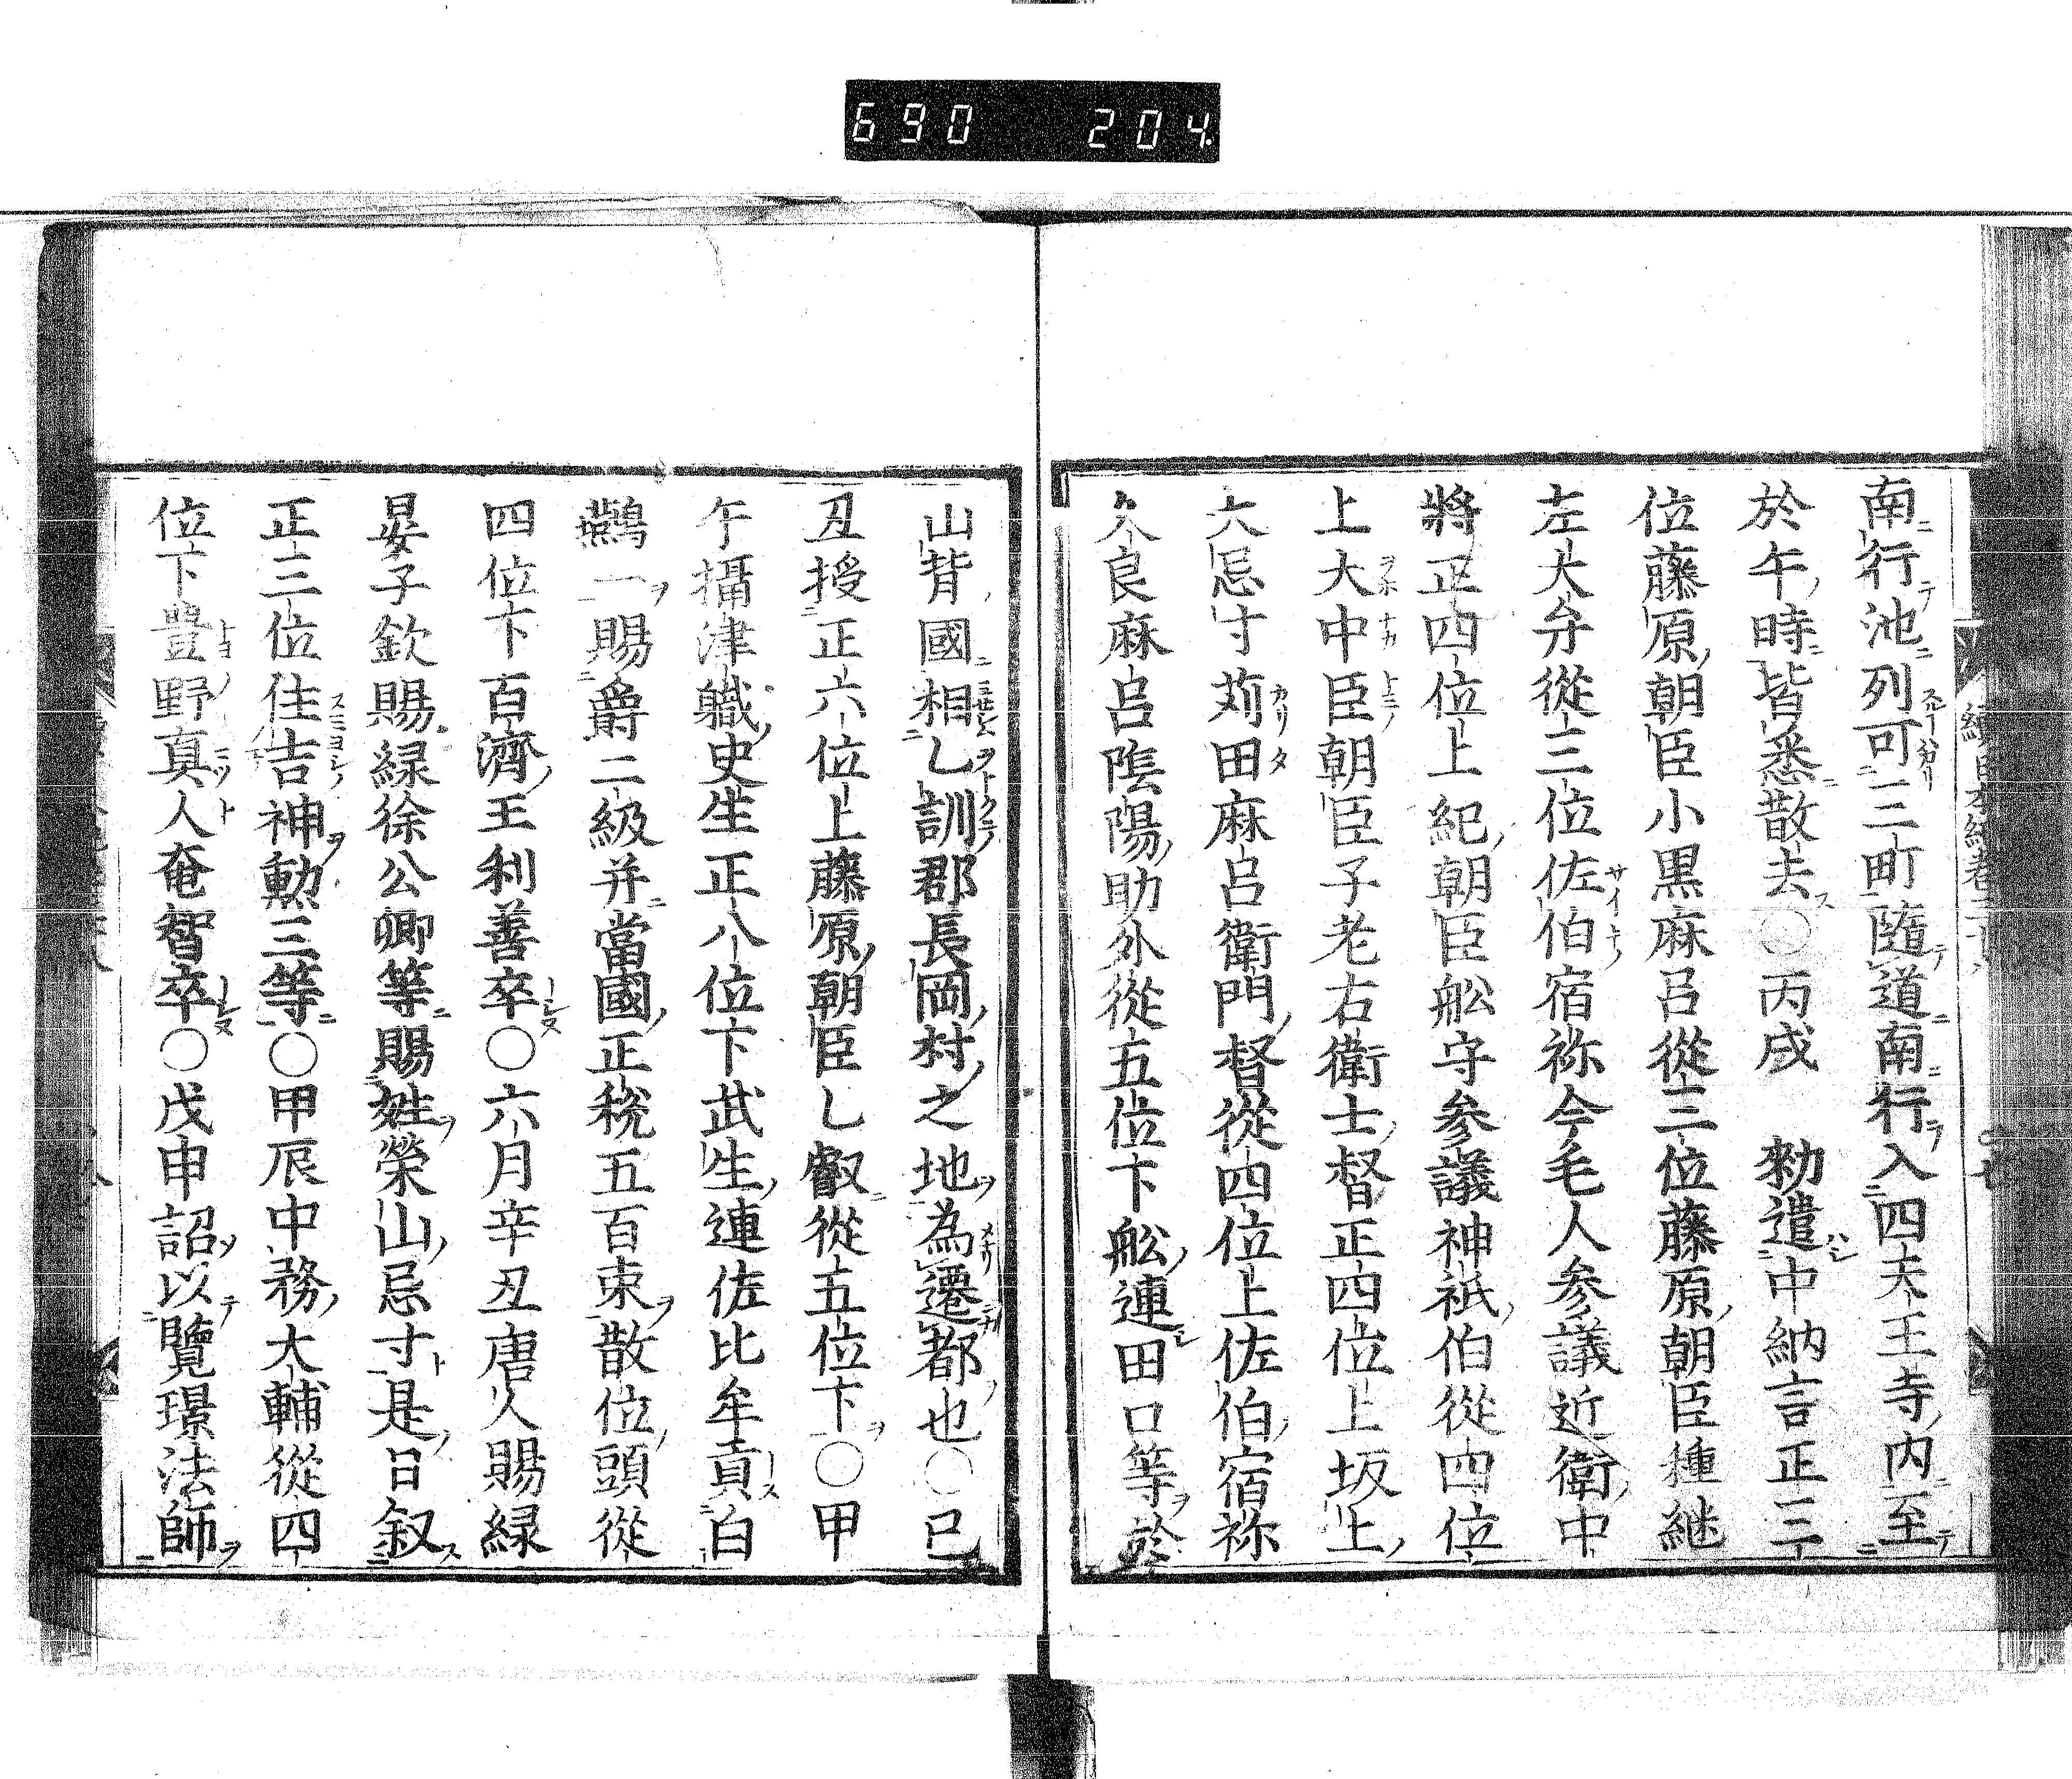 690 204
南行池列可三町隨道南行入四天王寺内至
於午時皆悉散去〇丙戌 勅遣中納言正三
位藤原朝臣小黒麻呂從三位藤原朝臣種継
左大弁從三位佐伯宿祢今毛人参議近衛中
將正四位上紀朝臣舩守参議神祇伯從四位
上大中臣朝臣子老右衛士督正四位上坂上
大忌寸苅田麻呂衛門督從四位上佐伯宿祢
久良麻呂陰陽助外從五位下舩連田口等於
山背國相乙訓郡長岡村之地為遷都也〇已
丑授正六位上藤原朝臣乙叡從五位下〇甲
午攝津職史生正八位下武生連佐比牟貢白
鷰一賜爵二級并當國正税五百束散位頭從
四位下百濟王利善卒〇六月辛丑唐人賜緑
晏子欽賜緑徐公卿等賜姓榮山忌寸是日叙
正三位住吉神勲三等〇甲辰中務大輔從四
位下豊野真人奄智卒〇戊申詔以賢璟法師